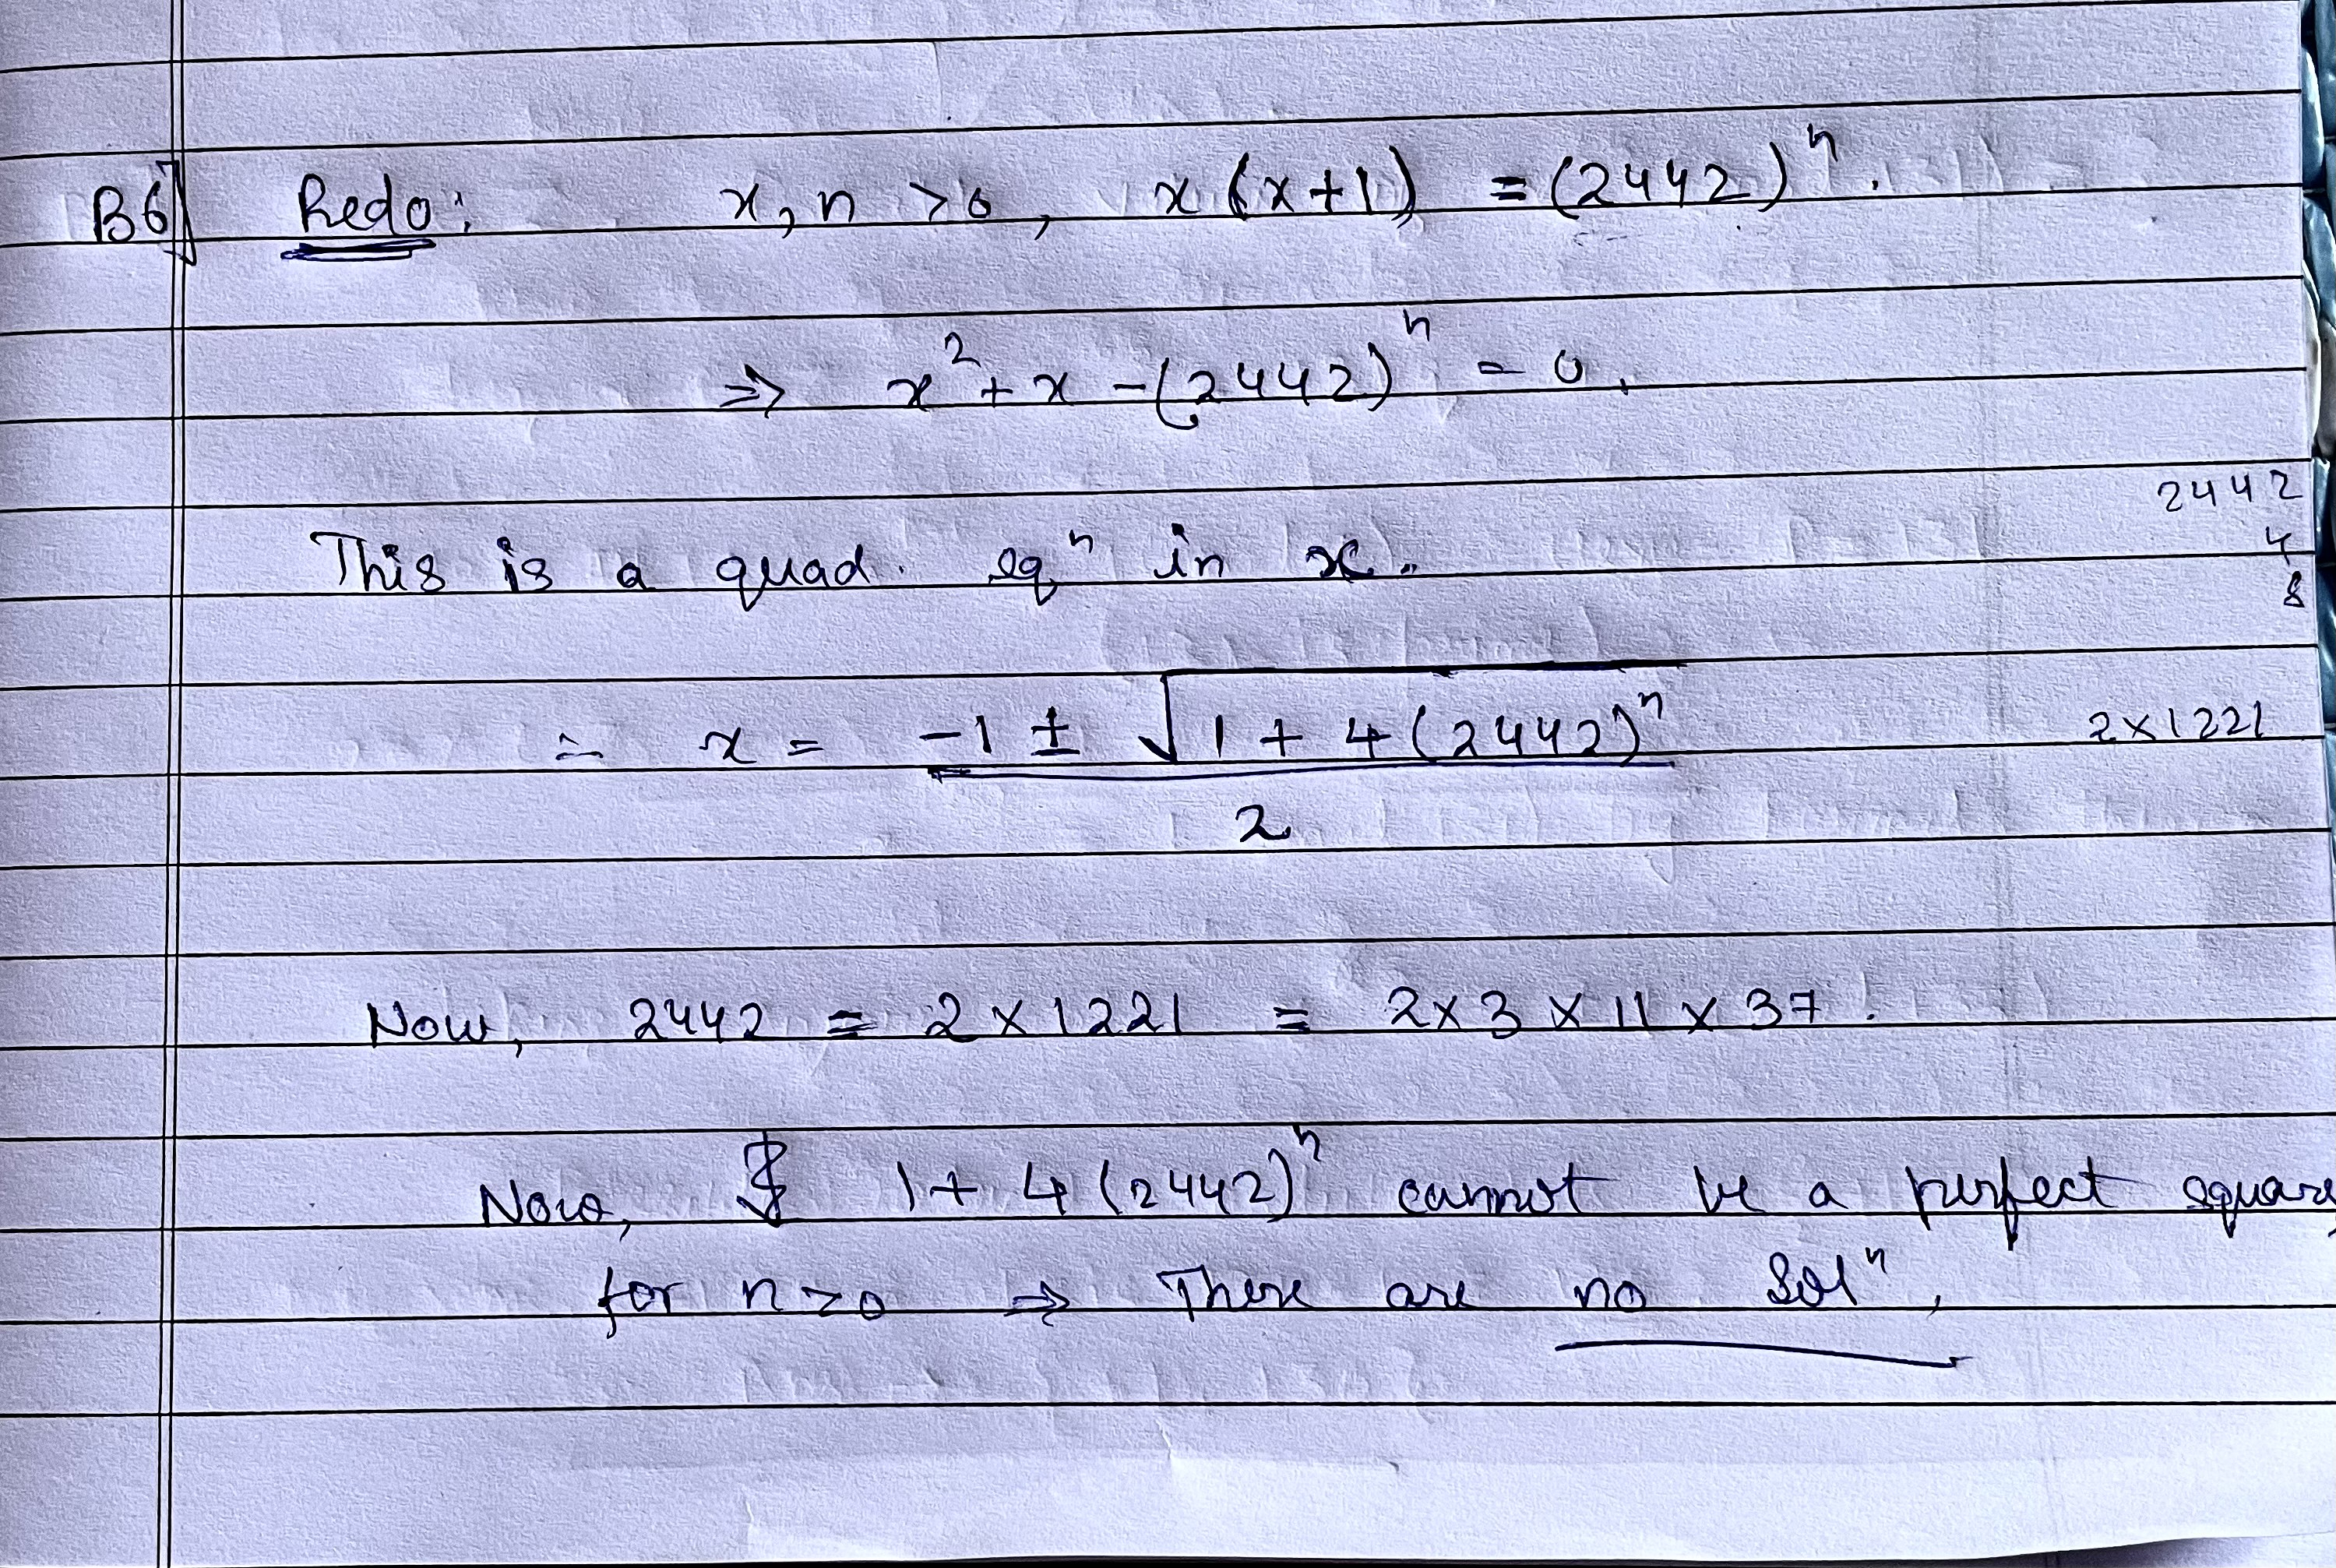 B6] Redo: x, n > 0, x(x+1) = (2442)ⁿ.
⇒ x² + x - (2442)ⁿ = 0.
2442
4
8
This is a quad. eqⁿ in x.
∴ x = (-1 ± √(1 + 4(2442)ⁿ)) / 2
2×1221
Now, 2442 = 2 × 1221 = 2×3×11×37.
Now, 1+ 4(2442)ⁿ cannot be a perfect square
for n>0 ⇒ There are no Solⁿ,